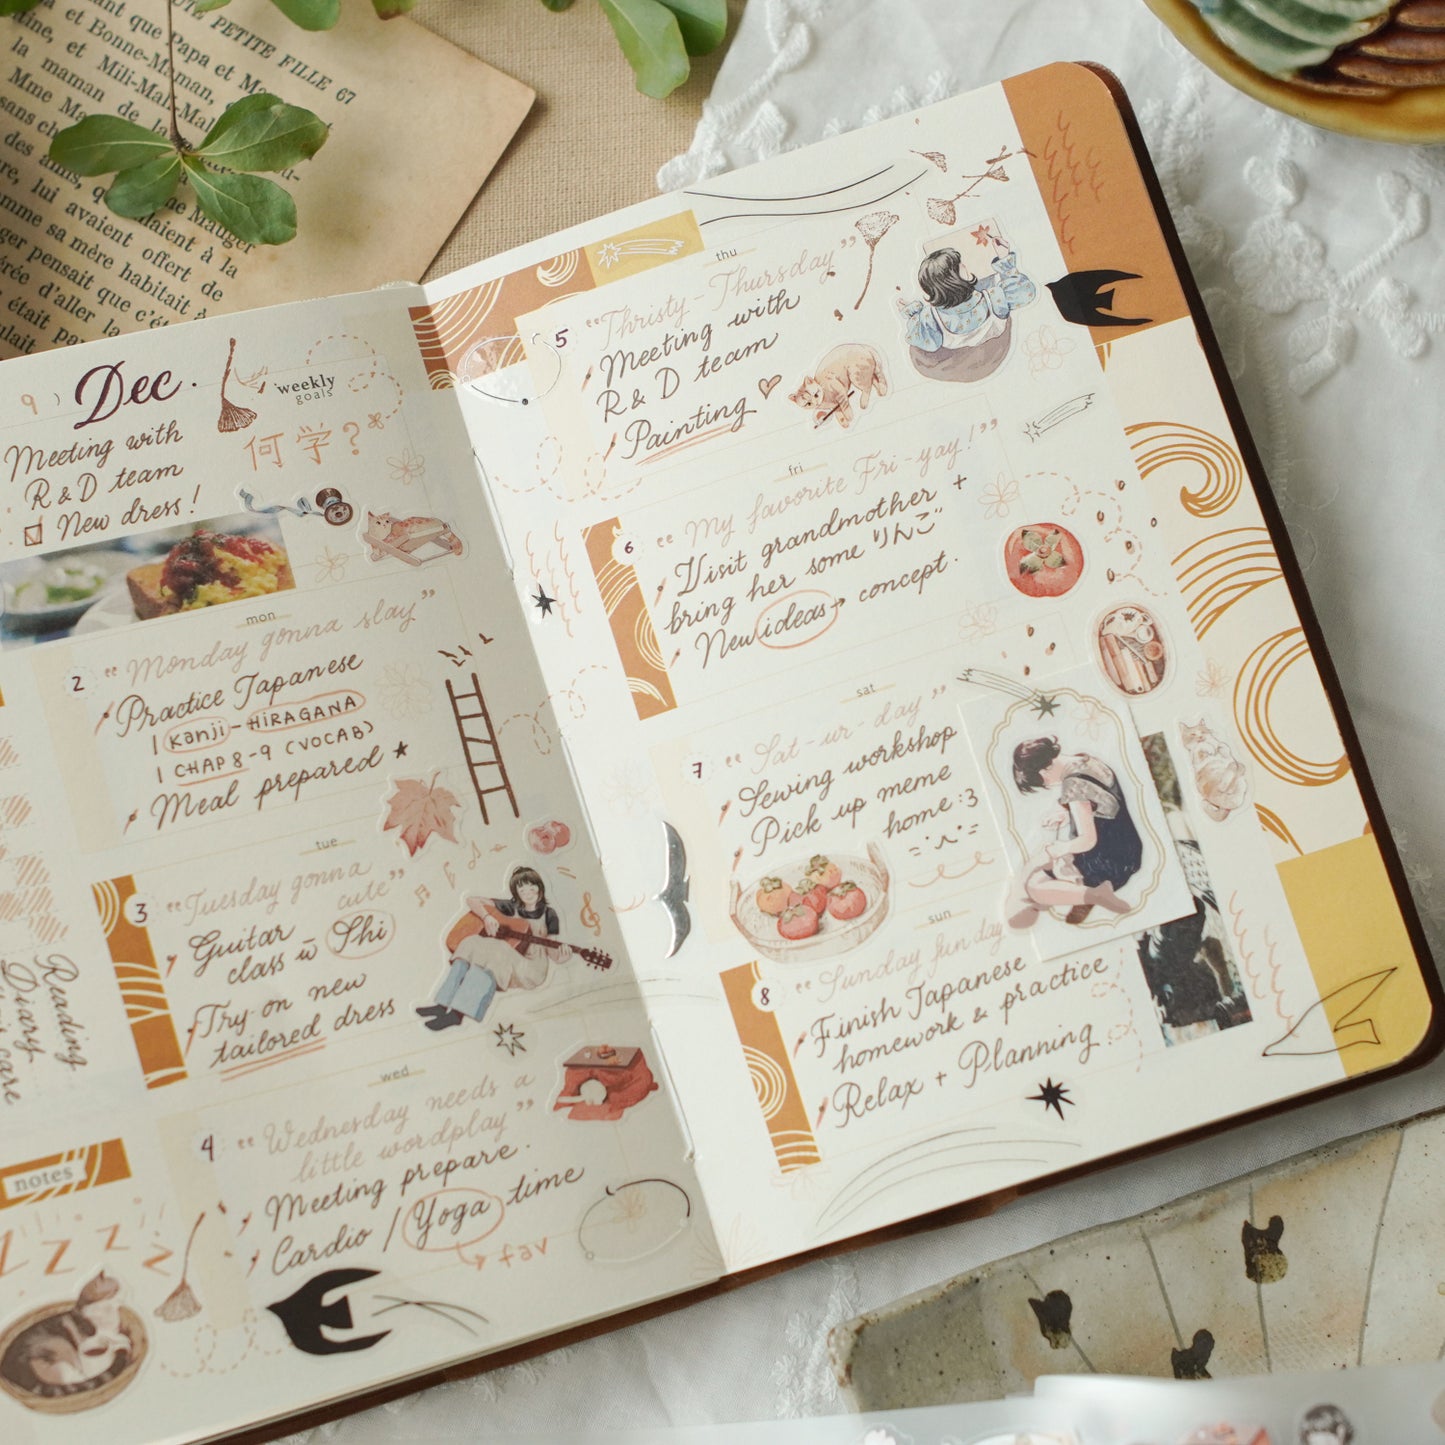 UTE PETITE FILLE 67
tant que Papa et
et Bonne-Maman,
tine, et Mili-Mali-Mal
la maman de la
Mme Ma
sans ch
des amis, qu
re, lui avaient offert de
mme sa mère habitait à
ger pensait que c'ét
rée d'aller la
était pa
ulait
Mauger
laient à la
9 )
Dec.
weekly
goals
Meeting with
R & D team
New dress!
何学?
mon
2 "Monday gonna slay"
Practice Japanese
Kanji - HIRAGANA
CHAP 8-9 (VOCAB)
Meal prepared ★
tue
3 "Tuesday gonna
cute"
Guitar
class w̄ Shi
Try-on new
tailored dress
wed
4 "Wednesday needs a
little wordplay"
Meeting prepare.
Cardio / Yoga time
→ fav
Reading
Diary
care
notes
Z Z Z Z
thu
5 "Thristy-Thursday"
Meeting with
R & D team
Painting ♡
fri
6 "My favorite Fri-yay!"
Visit grandmother +
bring her some "りんご"
New ideas → concept.
sat
7 "Sat-ur-day"
Sewing workshop
Pick up meme
home :3
sun
8 "Sunday fun day
Finish Japanese
homework & practice
Relax + Planning